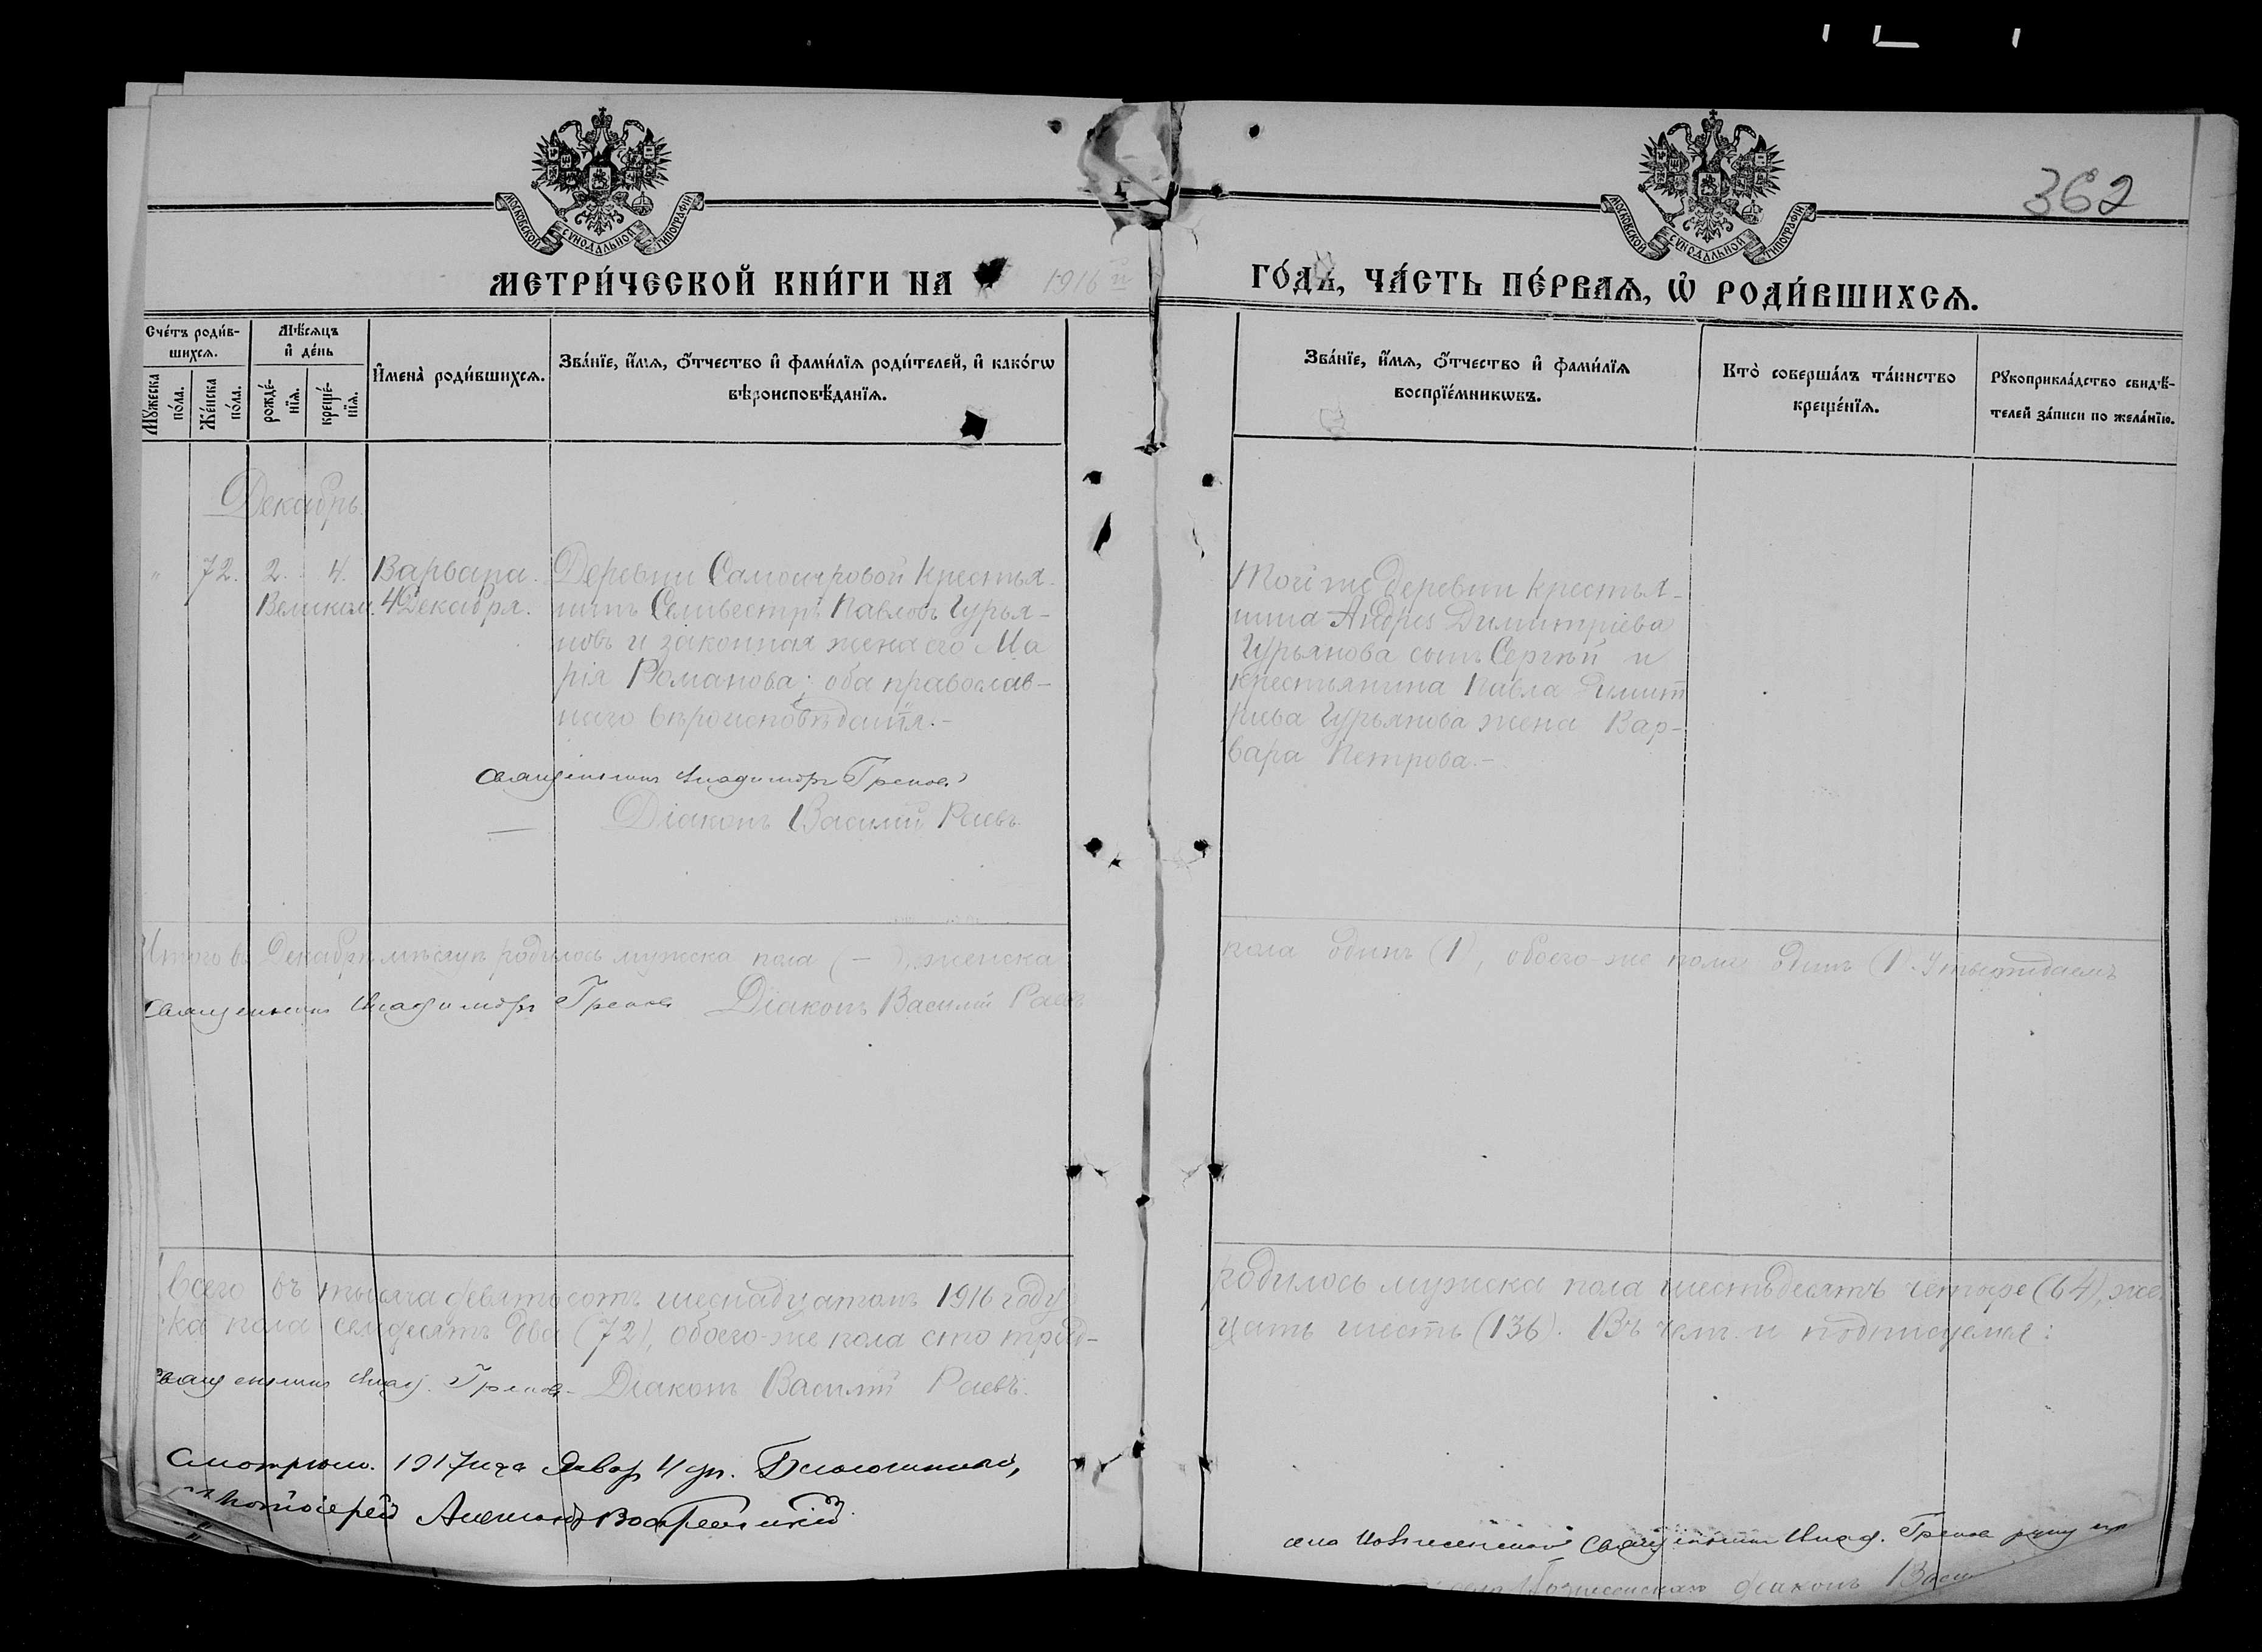 362
МОСКОВСКОЙ СѴНОДАЛЬНОЙ ТИПОГРАФІИ
МОСКОВСКОЙ СѴНОДАЛЬНОЙ ТИПОГРАФІИ
МЕТРИ́ЧЕСКОЙ КНИ́ГИ НА 1916 й ГО́ДЪ, ЧА́СТЬ ПЕ́РВАЯ, Ѡ҆ РОДИ́ВШИХСЯ.
Сче́тъ роди́в-
шихся.
Мꙋ́жеска по́ла.
Же́нска по́ла.
Мѣ́сяцъ
и҆ де́нь
рожде́-
нїя.
креще́-
нїя.
И҆мена̀ роди́вшихся.
Зва́нїе, и҆́мя, ѻ҆́тчество и҆ фами́лїя роди́телей, и҆ како́гѡ
вѣроисповѣ́данїя.
Зва́нїе, и҆́мя, ѻ҆́тчество и҆ фами́лїя
воспрїе́мникѡвъ.
Кто̀ соверша́лъ та́инство
креще́нїя.
Рꙋкоприкла́дство свидѣ́-
телей за́писи по жела́нїю.
Декабрь.
" 72. 2. 4. Варвара.
Великом. 4 Декабря.
Деревни Крестья-
нинъ Селивестръ Павловъ Гурья-
новъ и законная жена его Ма
рія Романова; оба православ-
наго вѣроисповѣданія.-
Священникъ Владимиръ Грековъ
Діаконъ Василій Раевъ
Той же деревни крестья-
нина Андрея Димитріева
Гурьянова сынъ Сергѣй и
крестьянина Павла Димит
ріева Гурьянова жена Вар-
вара Петрова.-
Итого въ Декабрѣ мѣсяцѣ родилось мужска пола (-), женска
пола одинъ (1), обоего-же пола одинъ (1). Утверждаемъ
Священникъ Владимиръ Грековъ Діаконъ Василій Раевъ
Всего въ тысяча девятьсотъ шеснадцатомъ 1916 году
родилось мужска пола шестьдесятъ четыре (64), жен
ска пола семдесятъ два (72), обоего-же пола сто трид-
цать шесть (136). Въ чемъ и подписуемся:
Священникъ Влад. Грековъ Діаконъ Василій Раевъ.
Смотрѣлъ. 1917 года Январ 4 дн. Благочинный,
Протоіерей Александръ Воскресенскій
села Вознесенскаго Священникъ Влад. Грековъ руку
села Вознесенскаго діаконъ Васи